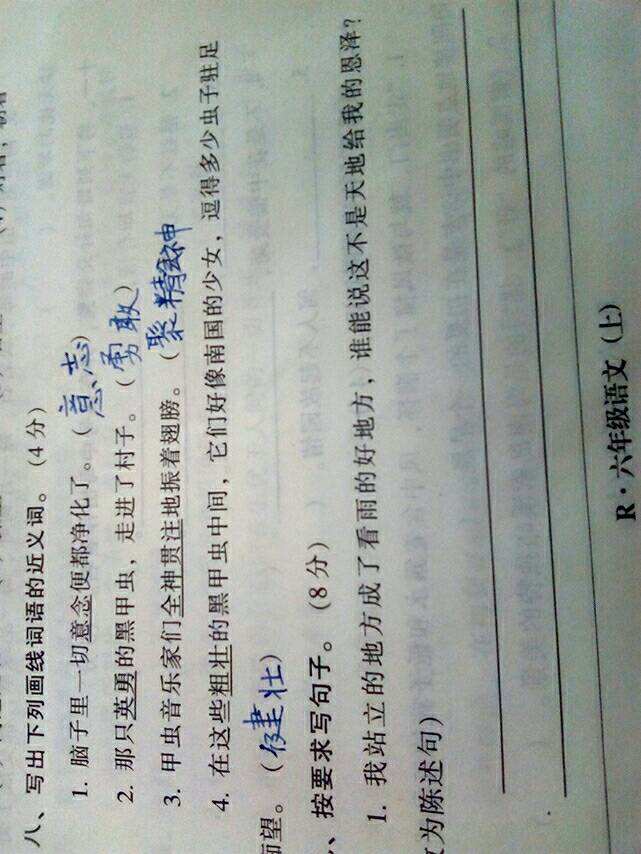 八、写出下列画线词语的近义词。(4分)
1. 脑子里一切意念便都净化了。(意志)
2. 那只英勇的黑甲虫，走进了村子。(勇敢)
3. 甲虫音乐家们全神贯注地振着翅膀。(聚精会神
4. 在这些粗壮的黑甲虫中间，它们好像南国的少女，逗得多少虫子驻足
而望。(健壮)
、按要求写句子。(8分)
1. 我站立的地方成了看雨的好地方，谁能说这不是天地给我的恩泽?
为陈述句)
R·六年级语文(上)